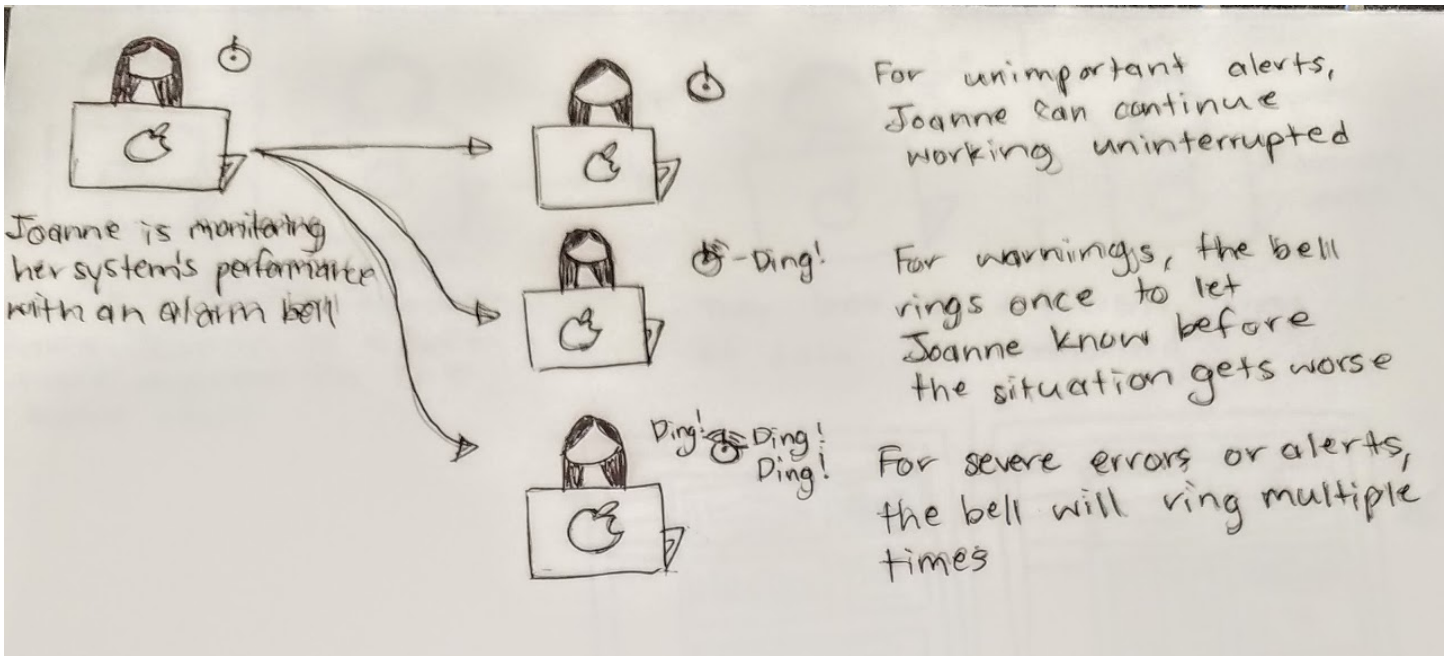 Joanne is monitoring
her system's performance
with an alarm bell
For unimportant alerts,
Joanne can continue
working uninterrupted
-Ding!
For warnings, the bell
rings once to let
Joanne know before
the situation gets worse
Ding! Ding!
Ding!
For severe errors or alerts,
the bell will ring multiple
times